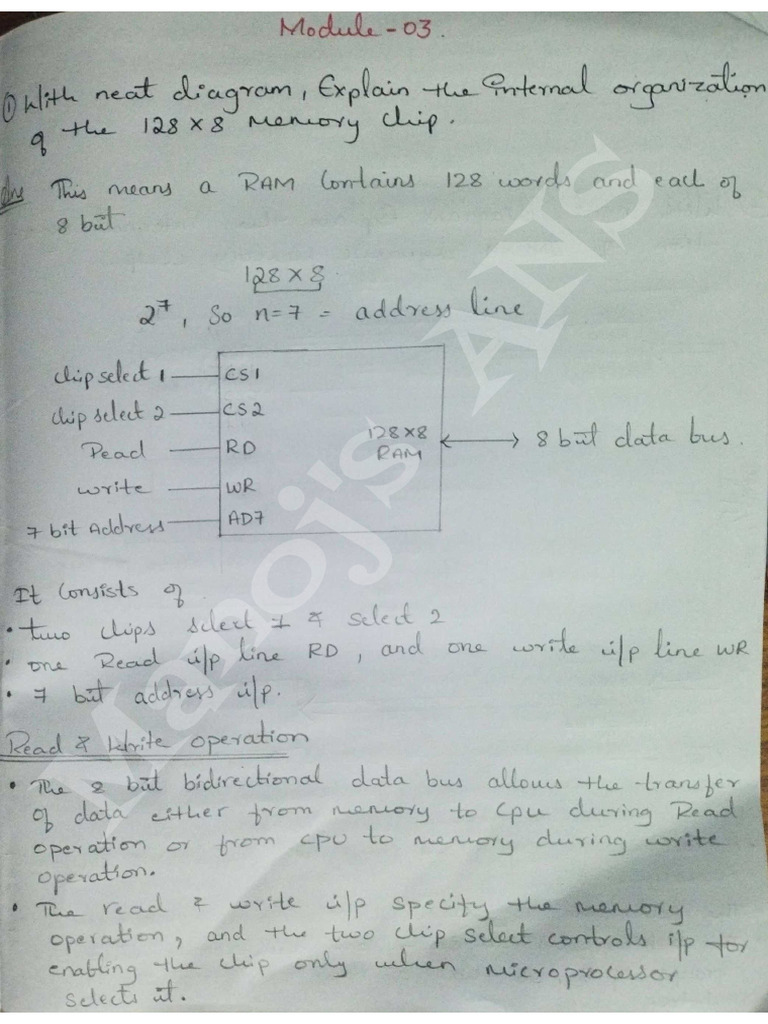 Module-03.
① With neat diagram, Explain the Internal organization
of the 128 x 8 Memory chip.
Ans This means a RAM Contains 128 words and each of
8 bit
128 x 8
2^7, So n=7 = address line
chip select 1 CS1
chip select 2 CS2
Read RD
write WR
7 bit Address AD7
128x8
RAM
8 bit data bus.
It Consists of
• two chips select 1 & select 2
• one Read i/p line RD, and one write i/p line WR
• 7 bit address i/p.
Read & Write operation
• The 8 bit bidirectional data bus allows the transfer
of data either from memory to cpu during Read
operation or from cpu to memory during write
operation.
• The read & write i/p specify the memory
operation, and the two chip select controls i/p for
enabling the chip only when microprocessor
selects it.
Manoj's ANS